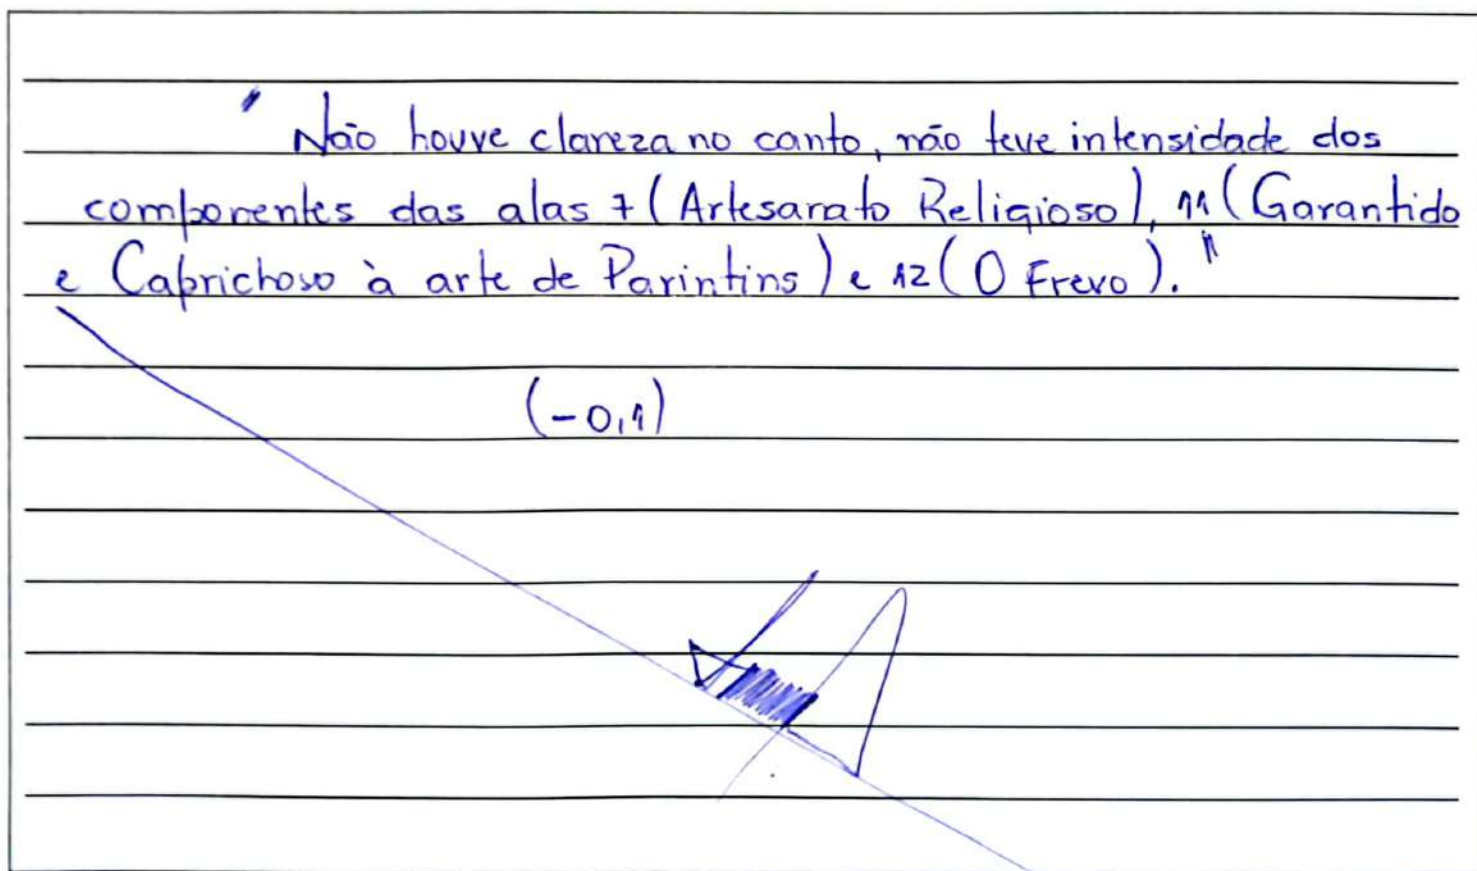 " Não houve clareza no canto, não teve intensidade dos
componentes das alas 7 (Artesanato Religioso), 11 (Garantido
e Caprichoso à arte de Parintins) e 12 (O Frevo). "
(-0,1)